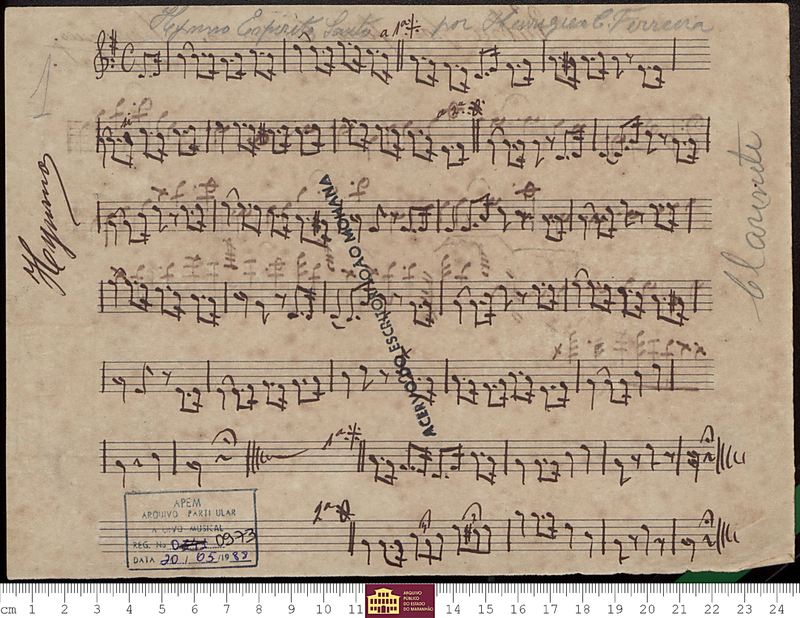 Hymno Espirito Santo por Henrique C. Ferreira
a 1ª
1.
Hymno
Clarinete
a 2ª
ACERVO DO ESCRITOR JOÃO MOHANA
1ª
2ª
APEM
ARQUIVO PARTICULAR
ACERVO MUSICAL
REG. No 0973
DATA 20/05/1988
cm 1 2 3 4 5 6 7 8 9 10 11 12 14 15 16 17 18 19 20 21 22 23 24
ARQUIVO
PÚBLICO
DO ESTADO
DO MARANHÃO